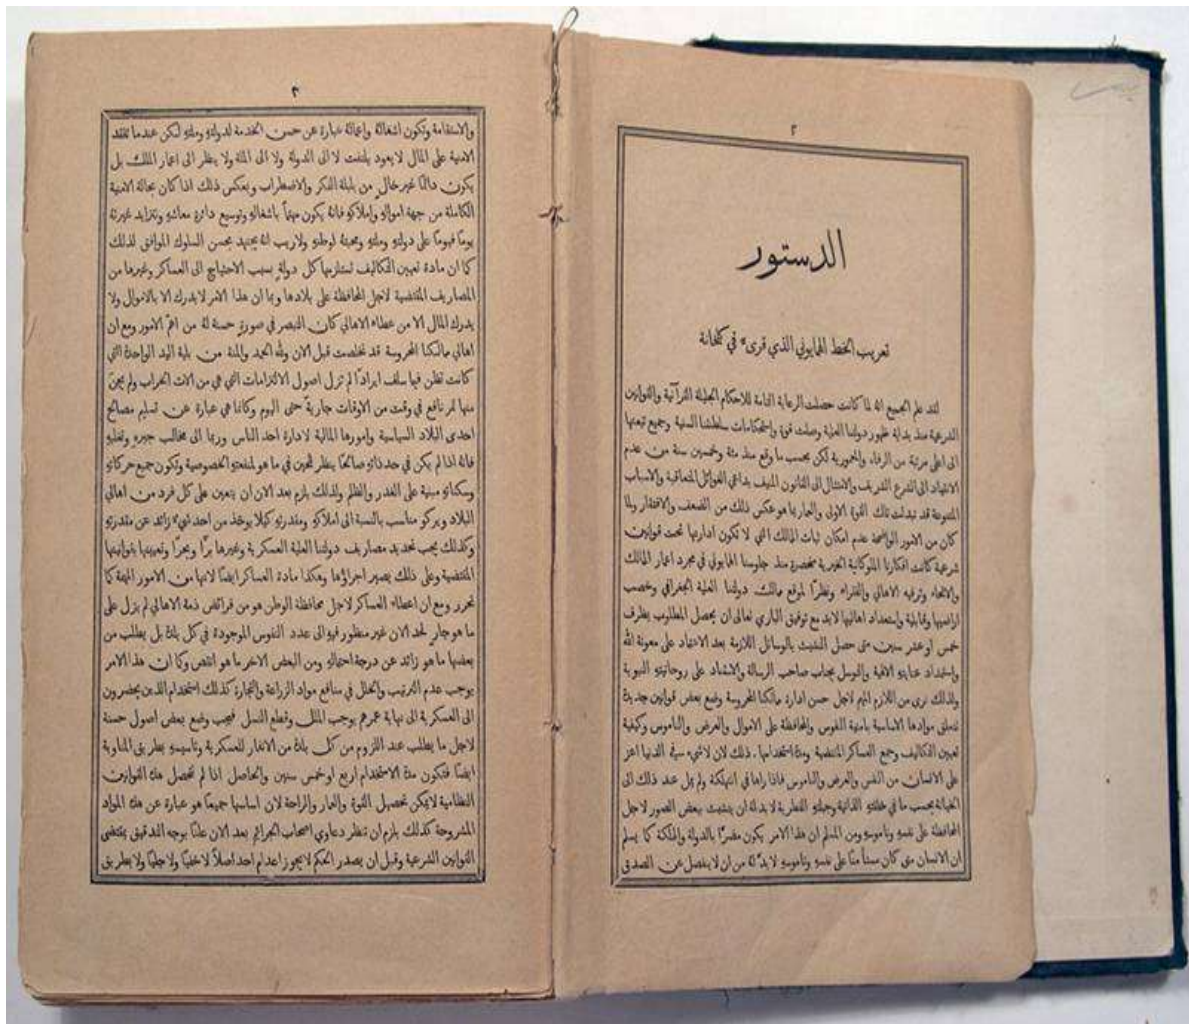 ٢
الدستور
تعريب الخط الهمايوني الذي قرىء في كلخانة
لقد علم الجميع انه لما كانت حصلت الرعاية التامة للاحكام الجليلة القرآنية والقوانين
الشرعية منذ بداية ظهور دولتنا العلية وصلت قوة واستحكامات سلطنتنا السنية وجميع تبعتها
الى اعلى مرتبة من الرفاه والمعمورية لكن بحسب ما وقع منذ مئة وخمسين سنة من عدم
الانقياد الى الشرع الشريف والامتثال الى القانون المنيف بداعي الغوائل المتعاقبة والاسباب
المتنوعة قد تبدلت تلك القوة الاولى والعمار بما هو عكس ذلك من الضعف والافتقار ولما
كان من الامور الواضحة عدم امكان ثبات الممالك التي لا تكون ادارتها تحت قوانين
شرعية كانت افكارنا الملوكانية الخيرية منحصرة منذ جلوسنا الهمايوني في مجرد اعمار الممالك
والانحاء وترفيه الاهالي والفقراء ونظرًا لموقع ممالك دولتنا العلية الجغرافي وخصب
اراضيها وقابلية واستعداد اهاليها لابد مع توفيق الباري تعالى ان يحصل المطلوب بظرف
خمس او عشر سنين متى حصل التشبث بالوسائل اللازمة بعد الاعتماد على معونة الله
واستمداد عنايته الالهية والتوسل بجناب صاحب الرسالة والاستمداد على روحانيته النبوية
ولذلك نرى من اللازم المهم لاجل حسن ادارة ممالكنا المحروسة وضع بعض قوانين جديدة
تتعلق موادها الاساسية بامنية النفوس والمحافظة على الاموال والعرض والناموس وكيفية
تعيين التكاليف وجمع العساكر المقتضية ومدة استخدامها. ذلك لان لاشيء في الدنيا اعز
على الانسان من النفس والعرض والناموس فاذا راها في التهلكة ولم يمل عند ذلك الى
الخيانة بحسب ما في خلقته الذاتية وجبلته الفطرية لا بد له ان يتشبث ببعض الصور لاجل
المحافظة على نفسه وناموسه ومن المسلم ان هذا الامر يكون مضرًا بالدولة والمملكة كما يسلم
ان الانسان متى كان مستأ منًا على نفسه وناموسه لا بدّ له من ان لا ينفصل عن الصدق
٣
والاستقامة وتكون اشغاله واعماله عبارة عن حسن الخدمة لدولته وملته لكن عندما تفقد
الامنية على المال لا يعود يلتفت لا الى الدولة ولا الى الملة ولا ينظر الى اعمار الملك بل
يكون دائمًا غير خال من بلبلة الفكر والاضطراب وبعكس ذلك اذا كان بحالة الامنية
الكاملة من جهة امواله واملاكه فانه يكون مهتمًا باشغاله وتوسيع دائرة معاشه وتتزايد غيرته
يومًا فيومًا على دولته وملته ومحبته لوطنه ولاريب انه يجتهد بحسن السلوك الموافق لذلك
كما ان مادة تعيين التكاليف تستلزمها كل دولة بسبب الاحتياج الى العساكر وغيرها من
المصاريف المقتضية لاجل المحافظة على بلادها وبما ان هذا الامر لا يدرك الا بالاموال ولا
يدرك المال الا من عطاء الاهالي كان التبصر في صورة حسنة له من اهمّ الامور ومع ان
اهالي ممالكنا المحروسة قد تخلصت قبل الان ولله الحمد والمنة من بلية اليد الواحدة التي
كانت تظن فيما سلف ايرادًا لم تزل اصول الالتزامات التي هي من الات الخراب ولم يجنَ
منها ثمر نافع في وقت من الاوقات جارية حتى اليوم وكانما هي عبارة عن تسليم مصالح
احدى البلاد السياسية وامورها المالية لادارة احد الناس وربما الى مخالب جبره وتغلبه
فانه اذا لم يكن في حد ذاته صالحًا ينظر للحين في ما هو لمنفعته الخصوصية وتكون جميع حركاته
وسكناته مبنية على الغدر والظلم ولذلك يلزم بعد الان ان يتعين على كل فرد من اهالي
البلاد ويركو مناسب بالنسبة الى املاكه ومقدرته كيلا يوخذ من احد شيء زائد عن مقدرته
وكذلك يجب تحديد مصاريف دولتنا العلية العسكرية وغيرها برًّا وبحرًا وتعيينها بقوانينها
المقتضية وعلى ذلك يصير اجراؤها وهكذا مادة العساكر ايضًا لانها من الامور المهمة كما
تحرر ومع ان اعطاء العساكر لاجل محافظة الوطن هو من فرائض ذمة الاهالي لم يزل على
ما هو جارٍ لحد الان غير منظور فيه الى عدد النفوس الموجودة في كل بلدة بل يطلب من
بعضها ما هو زائد عن درجة احتماله ومن البعض الاخر ما هو انقص وكما ان هذا الامر
يوجب عدم الترتيب والخلل في منافع مواد الزراعة والتجارة كذلك استخدام الذين يحضرون
الى العسكرية الى نهاية عمرهم يوجب الملل وقطع النسل فيجب وضع بعض اصول حسنة
لاجل ما يطلب عند اللزوم من كل بلدة من الانفار للعسكرية وتاسيسه بطريق المناوبة
ايضًا فتكون مدة الاستخدام اربع او خمس سنين والحاصل اذا لم تحصل هذه القوانين
النظامية لا يمكن تحصيل القوة والعمار والراحة لان اساسها جميعًا هو عبارة عن هذه المواد
المشروحة كذلك يلزم ان تنظر دعاوي اصحاب الجرائم بعد الان علنًا بوجه التدقيق بمقتضى
القوانين الشرعية وقبل ان يصدر الحكم لا يجوز اعدام احد اصلاً لا خفيًا ولا جليًا ولا بطريق